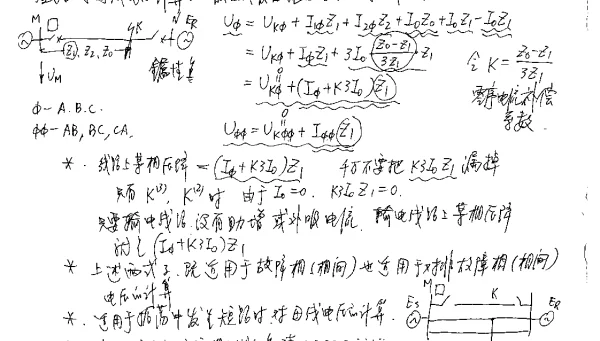 M K N E_R
Z₁, Z₂, Z₀
U_M
Φ－A.B.C.
ΦΦ－AB, BC, CA.
U_Φ = U_KΦ + I_1Φ Z₁ + I_2Φ Z₂ + I₀Z₀ + I₀Z₁ － I₀Z₁
= U_KΦ + I_Φ Z₁ + 3I₀ (Z₀－Z₁)/3Z₁ · Z₁
= U_KΦ + (I_Φ + K3I₀) Z₁
0
令 K = (Z₀－Z₁)/3Z₁
零序电流补偿
系数.
0
U_ΦΦ = U_KΦΦ + I_ΦΦ Z₁
*. 线路上某相压降 = (I_Φ + K3I₀)Z₁ 千万不要把 K3I₀Z₁ 漏掉
只有 K⁽³⁾, K⁽²⁾ 时 由于 I₀ = 0. K3I₀Z₁ = 0.
只要输电线路没有助增或外汲电流, 输电线路上某相压降
(I_Φ + K3I₀)Z₁
* 上述两式, 既适用于故障相(相间)也适用于对非故障相(相间)
电压的计算
*. 适用于振荡中发生短路时对母线电压的计算.
M K
E_S E_R